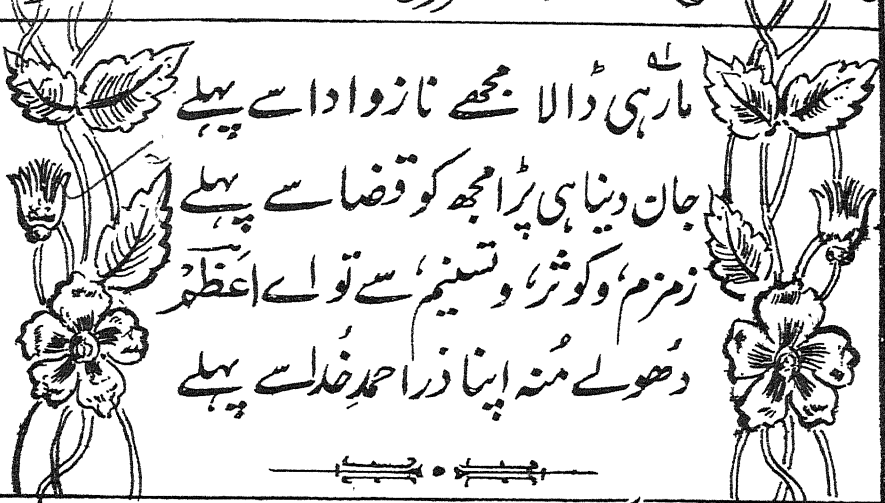 مار ہی ڈالا مجھے ناز و ادا سے پہلے
جان دینا ہی پڑا مجھ کو قضا سے پہلے
زمزم، و کوثر، و تسنیم، سے تو اے اعظمؔ
دُھو لے مُنہ اپنا ذرا حمدِ خُدا سے پہلے